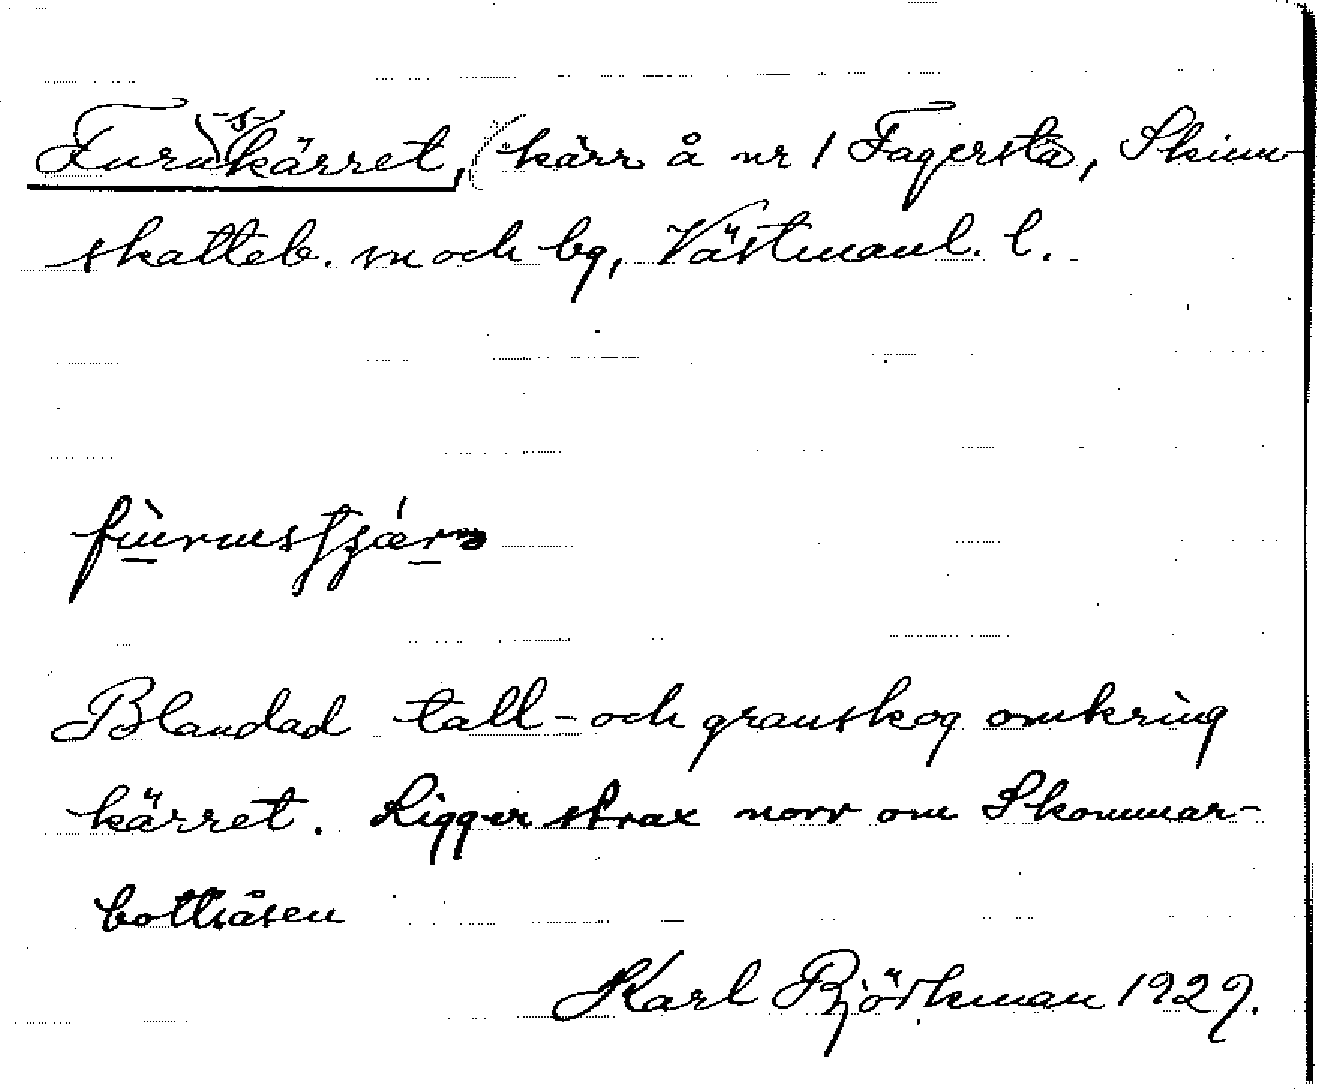 Furuskärret, (kärr å nr 1 Fagersta, Skinn-
skatteb. sn och bg, Västmanl. l.
Blandad tall- och granskog omkring
kärret. Ligger strax norr om Skommar-
bottsåsen
Karl Björkman 1929.